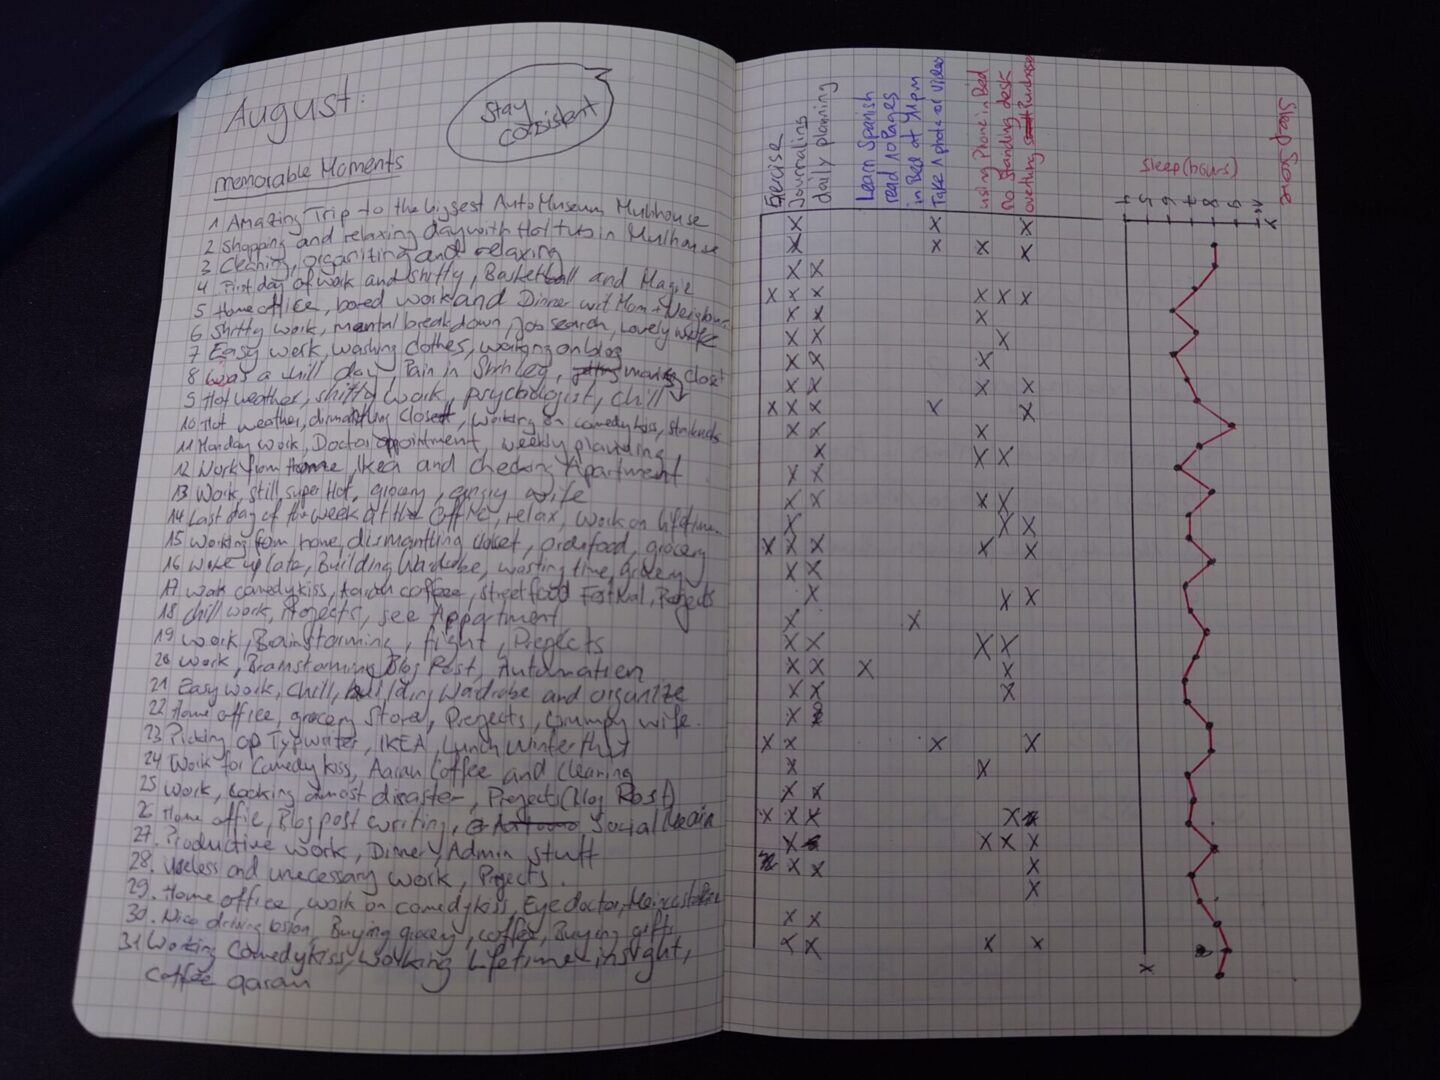 August:
Stay
consistent
memorable Moments
1 Amazing Trip to the biggest Auto Museum Mulhouse
2 Shopping and relaxing day with Hot tub in Mulhouse
3 Cleaning, organizing and relaxing
4 First day of work and shitty, Basketball and Magic
5 Home office, bored work and Dinner with Mom + Neighbours
6 Shitty work, mental breakdown, job search, lovely wife
7 Easy work, washing clothes, working on blog
8 was a chill day, Pain in, moving closet
9 Hot weather, shitty work, psychologist, chill
10 Hot weather, dismantling closet, working on comedykiss,
11 Monday work, Doctor appointment, weekly planning,
12 Work from Home, Ikea and checking Apartment
13 Work, still super Hot, grocery, angry wife
14 Last day of the week at the Office, relax, work on
15 Working from home, dismantling closet, grocery
16 Woke up late, Building Wardrobe, wasting time, grocery
17 work comedykiss, Aaran coffee, Streetfood Festival, Projects
18 chill work, Projects, see Appartment
19 work, Brainstorming, fight, Projects
20 work, Brainstorming Blog Post, Automation
21 Easy work, chill, building Wardrobe and organize
22 Home office, grocery Store, Projects, Grumpy wife.
23 Picking up Typwriter, IKEA, Lunch Winterthur
24 Work for Comedykiss, Aaran Coffee and Cleaning
25 Work, Cooking almost disaster, Projects (Blog Post)
26 Home office, Blog post writing, Social
27. Productive work, Dinner, Admin stuff
28. Useless and unecessary work, Projects.
29. Home office, work on comedykiss, Eye doctor,
30. Nice driving lesson, Buying grocery, coffee, Buying gifts
31 Working Comedykiss, Working Lifetime insight,
coffee aaran
Exercise
Journaling
daily planning
Learn Spanish
read 10 Pages
in Bed at 11pm
Take 1 photo or video
using Phone in Bed
No standing desk
overthing
Sleep (hours)
4 5 6 7 8 9
Sleep Score